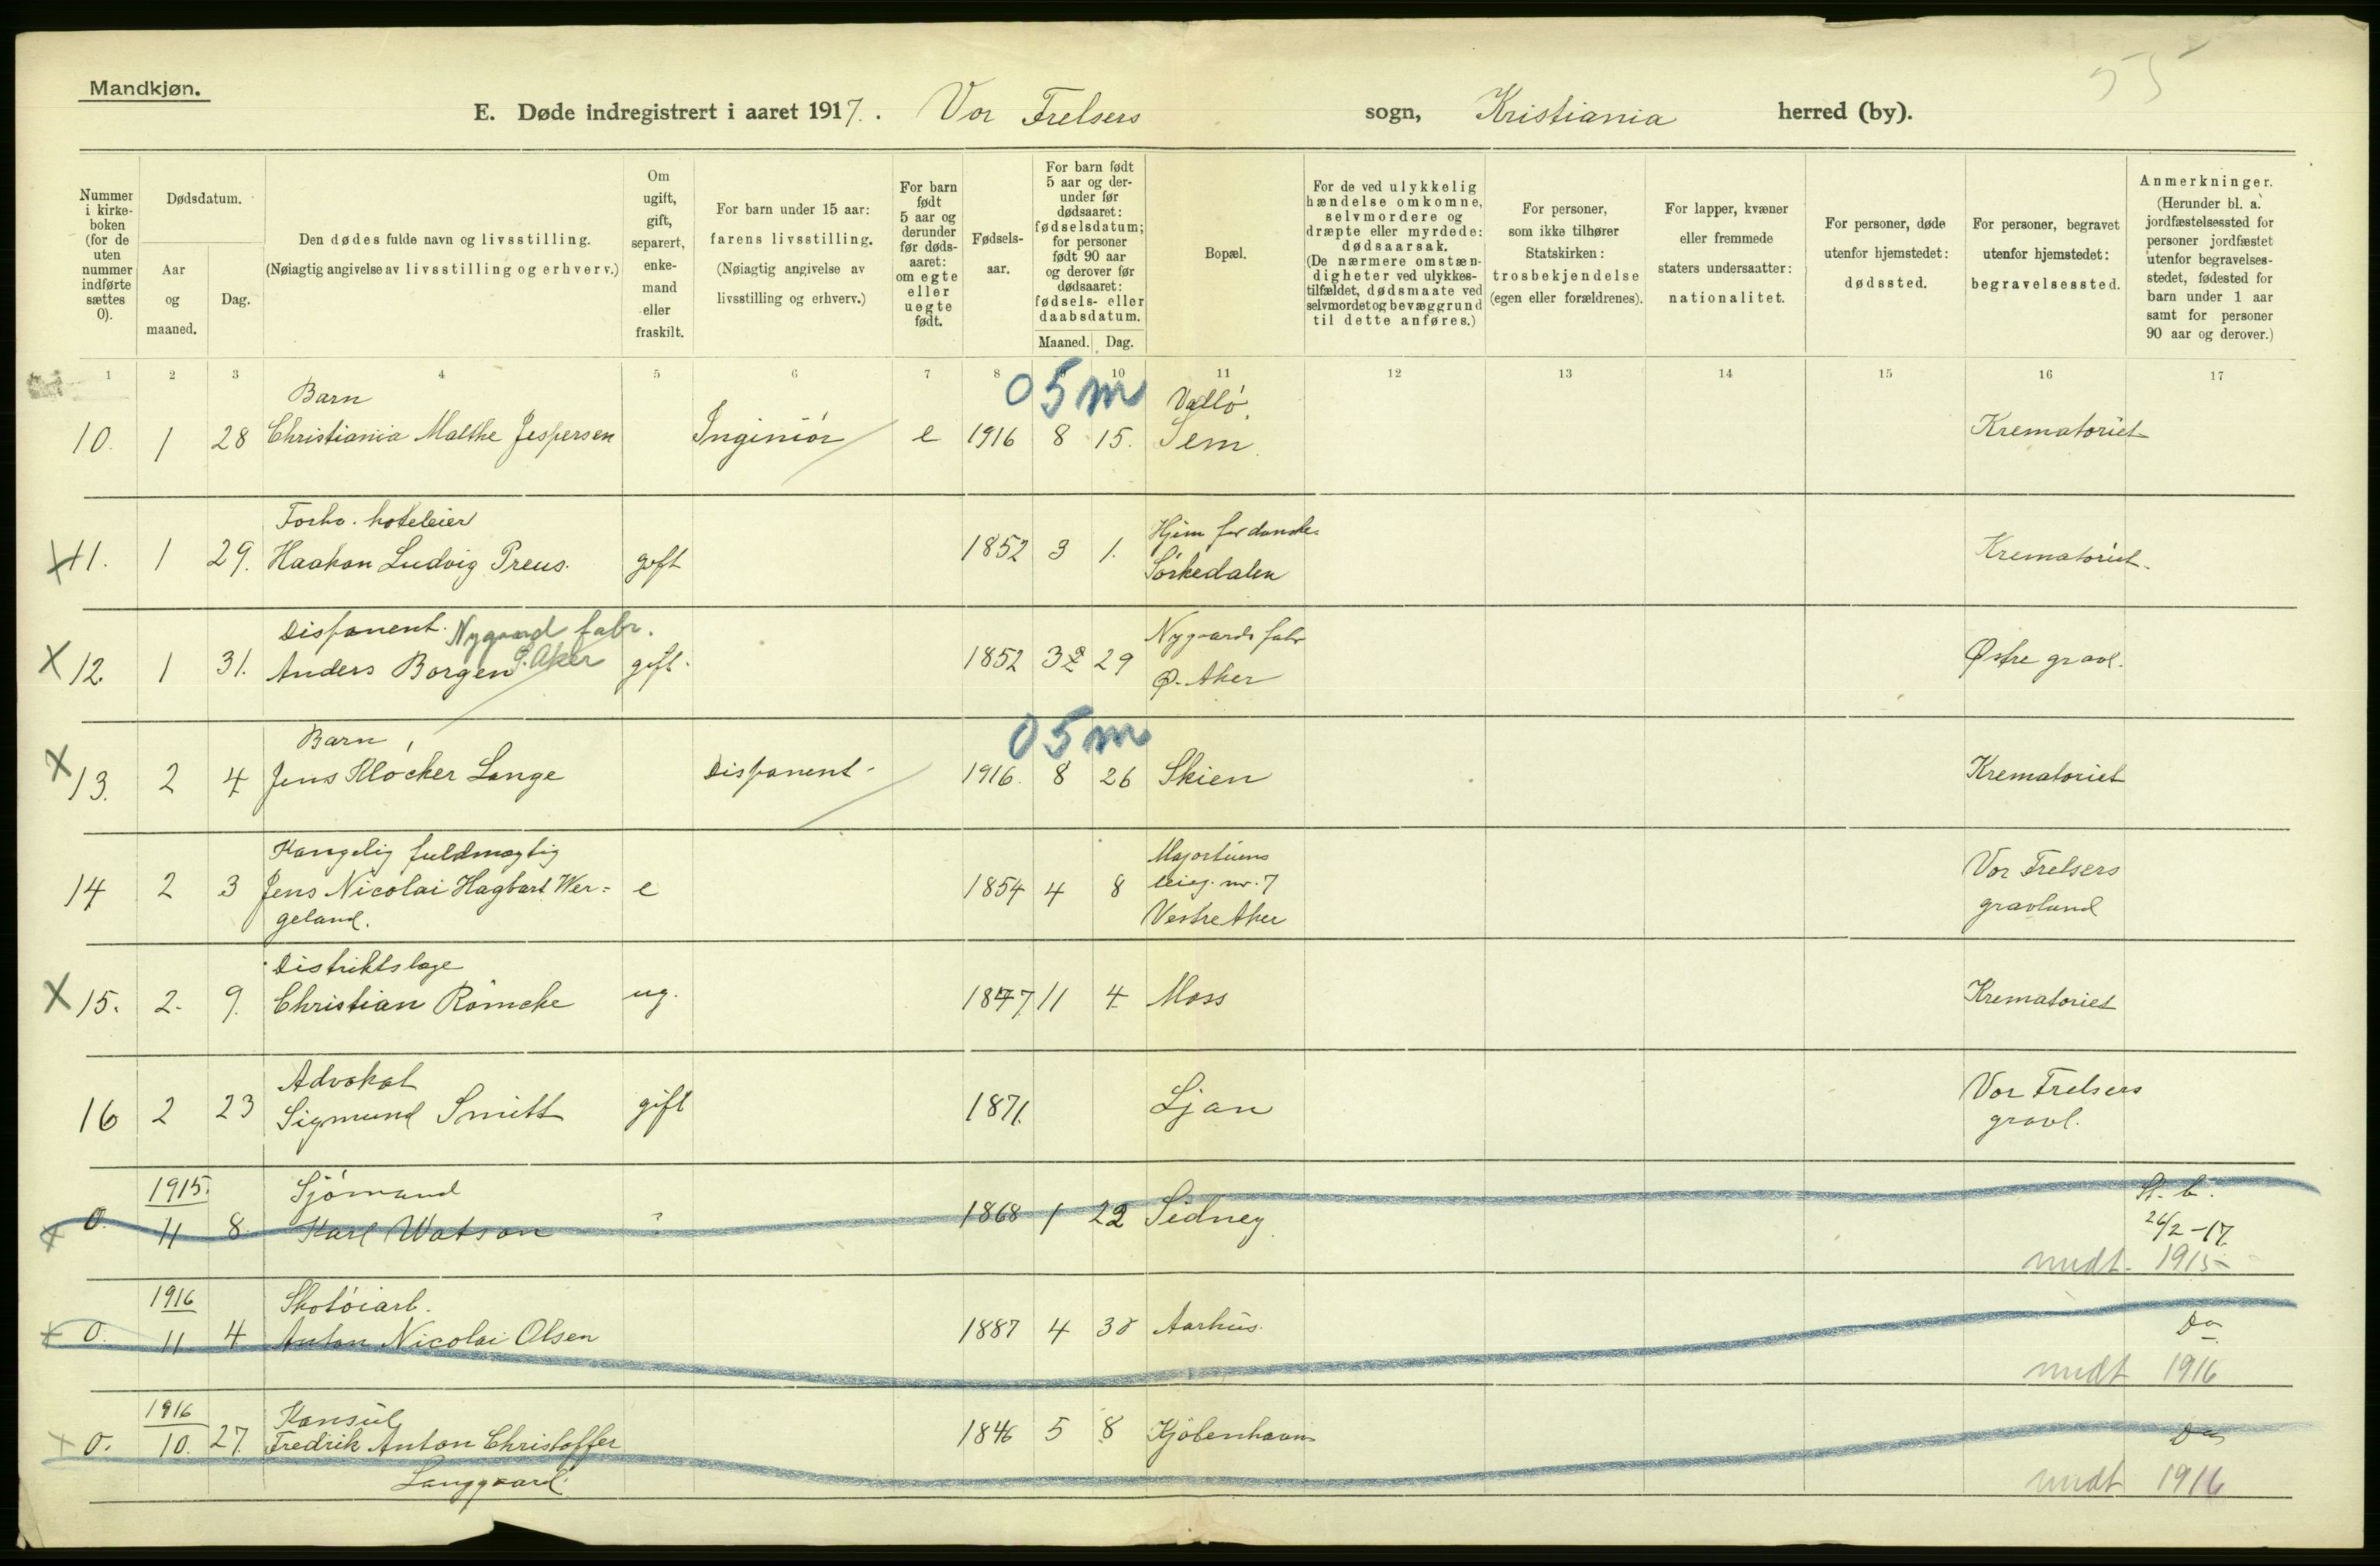 55
Mandkjøn.
E. Døde indregistrert i aaret 1917. Vor Frelsers sogn, Kristiania herred (by).
Nummer i kirke-boken (for de uten nummer indførte sættes 0).
Dødsdatum.
Aar og maaned.
Dag.
Den dødes fulde navn og livsstilling.
(Nøiagtig angivelse av livsstilling og erhverv.)
Om ugift, gift, separert, enke-mand eller fraskilt.
For barn under 15 aar: farens livsstilling. (Nøiagtig angivelse av livsstilling og erhverv.)
For barn født 5 aar og derunder før døds-aaret: om egte eller uegte født.
Fødsels-aar.
For barn født 5 aar og der-under før dødsaaret: fødselsdatum; for personer født 90 aar og derover før dødsaaret: fødsels- eller daabsdatum.
Maaned. Dag.
Bopæl.
For de ved ulykkelig hændelse omkomne, selvmordere og dræpte eller myrdede: dødsaarsak. (De nærmere omstæn-digheter ved ulykkes-tilfældet, dødsmaate ved selvmordet og bevæggrund til dette anføres.)
For personer, som ikke tilhører Statskirken: trosbekjendelse (egen eller forældrenes).
For lapper, kvæner eller fremmede staters undersaatter: nationalitet.
For personer, døde utenfor hjemstedet: dødssted.
For personer, begravet utenfor hjemstedet: begravelsessted.
Anmerkninger. (Herunder bl. a. jordfæstelsessted for personer jordfæstet utenfor begravelses-stedet, fødested for barn under 1 aar samt for personer 90 aar og derover.)
1 2 3 4 5 6 7 8 9 10 11 12 13 14 15 16 17
Barn 05m Vallö,
10. 1 28 Christiania Malthe Jespersen Inginiör e 1916 8 15. Sem. Krematoriet
Forhv. hoteleier Hjem for danske
X 11. 1 29. Haakon Ludvig Preus. gift 1852 3 1. Sörkedalen Krematoriet.
Disponent. Nygaard fabr. Nygaards fabr
X 12. 1 31. Anders Borgen Ö. Aker gift. 1852 3 2 29 Ø. Aker Østre gravl.
Barn 05m
X 13. 2 4 Jens Klöcker Lange Disponent - 1916. 8 26 Skien Krematoriet
Kangelig fuldmægtig Majorstuens Vor Frelsers
14 2 3 Jens Nicolai Hagbart Wer= e 1854 4 8 leieg. nr. 7 gravlund
geland. Vestre Aker
Distriktslæge
X 15. 2. 9. Christian Römcke ug. 1847 11 4 Moss Krematoriet
Advokat Vor Frelsers
16 2 23 Sigmund Smitt gift 1871. Ljan gravl.
1915. Sjömand St. b.
X 0. 11 8. Karl Watson ? 1868 1 22 Sidney 26/2-17.
mdt. 1915
1916 Skotöiarb.
X 0. 11 4 Anton Nicolai Olsen 1887 4 30 Aarhus. Do
mdt 1916
1916 Konsul
X 0. 10. 27. Fredrik Anton Christoffer 1846 5 8 Kjöbenhavn Do
Langgaard. mdt 1916